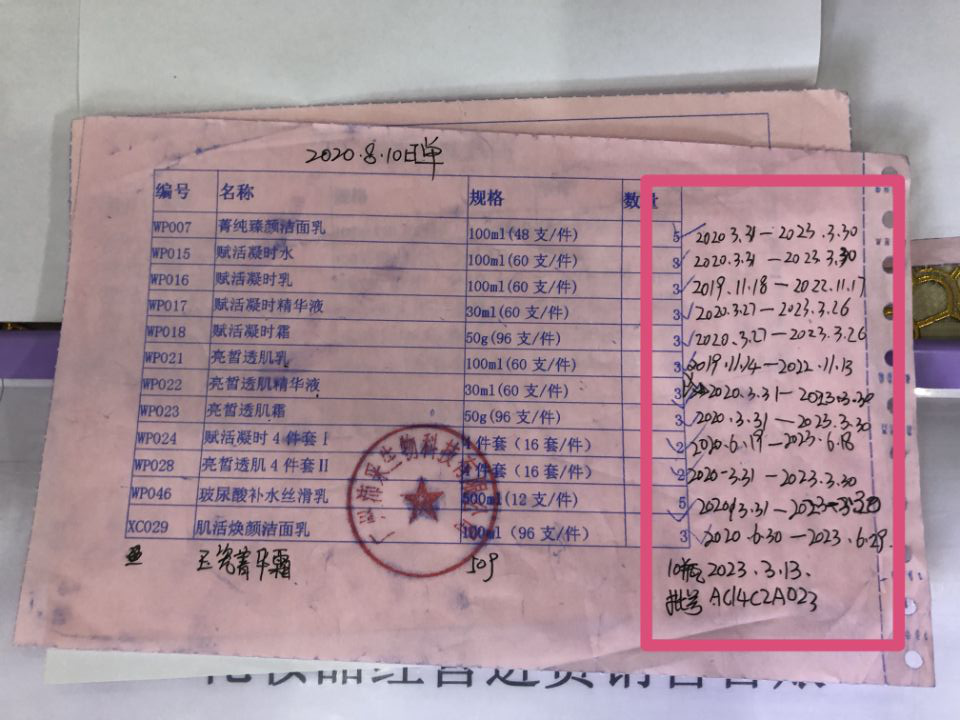 2020.8.10日单
编号 名称 规格 数量
WP007 菁纯臻颜洁面乳 100ml(48 支/件) 5 2020 3.31—2023.3.30
WP015 赋活凝时水 100ml(60 支/件) 3 2020.3.31—2023 3.30
WP016 赋活凝时乳 100ml(60 支/件) 3 2019.11.18—2022.11.17
WP017 赋活凝时精华液 30ml(60 支/件) 3 2020.3.27—2023.3.26
WP018 赋活凝时霜 50g(96 支/件) 3 2020.3.27—2023.3.26
WP021 亮皙透肌乳 100ml(60 支/件) 3 2019.11.14—2022.11.13
WP022 亮皙透肌精华液 30ml(60 支/件) 2020.3.31—2023.3.30
WP023 亮皙透肌霜 50g(96 支/件) 3 2020.3.31—2023.3.30
WP024 赋活凝时 4 件套 I 4 件套（16 套/件） 2 2020.6.19—2023.6.18
WP028 亮皙透肌 4 件套II 4 件套（16 套/件） 2 2020-3.31—2023.3.30
WP046 玻尿酸补水丝滑乳 500ml(12 支/件) 5 2020.3.31—2023.3.30
XC029 肌活焕颜洁面乳 100ml（96 支/件） 3 2020.6.30—2023.6.29
玉瓷菁华霜 50g 10瓶 2023.3.13.
批号 AC14C2A023
生物科技有限公司
化妆品经营进货销售台账